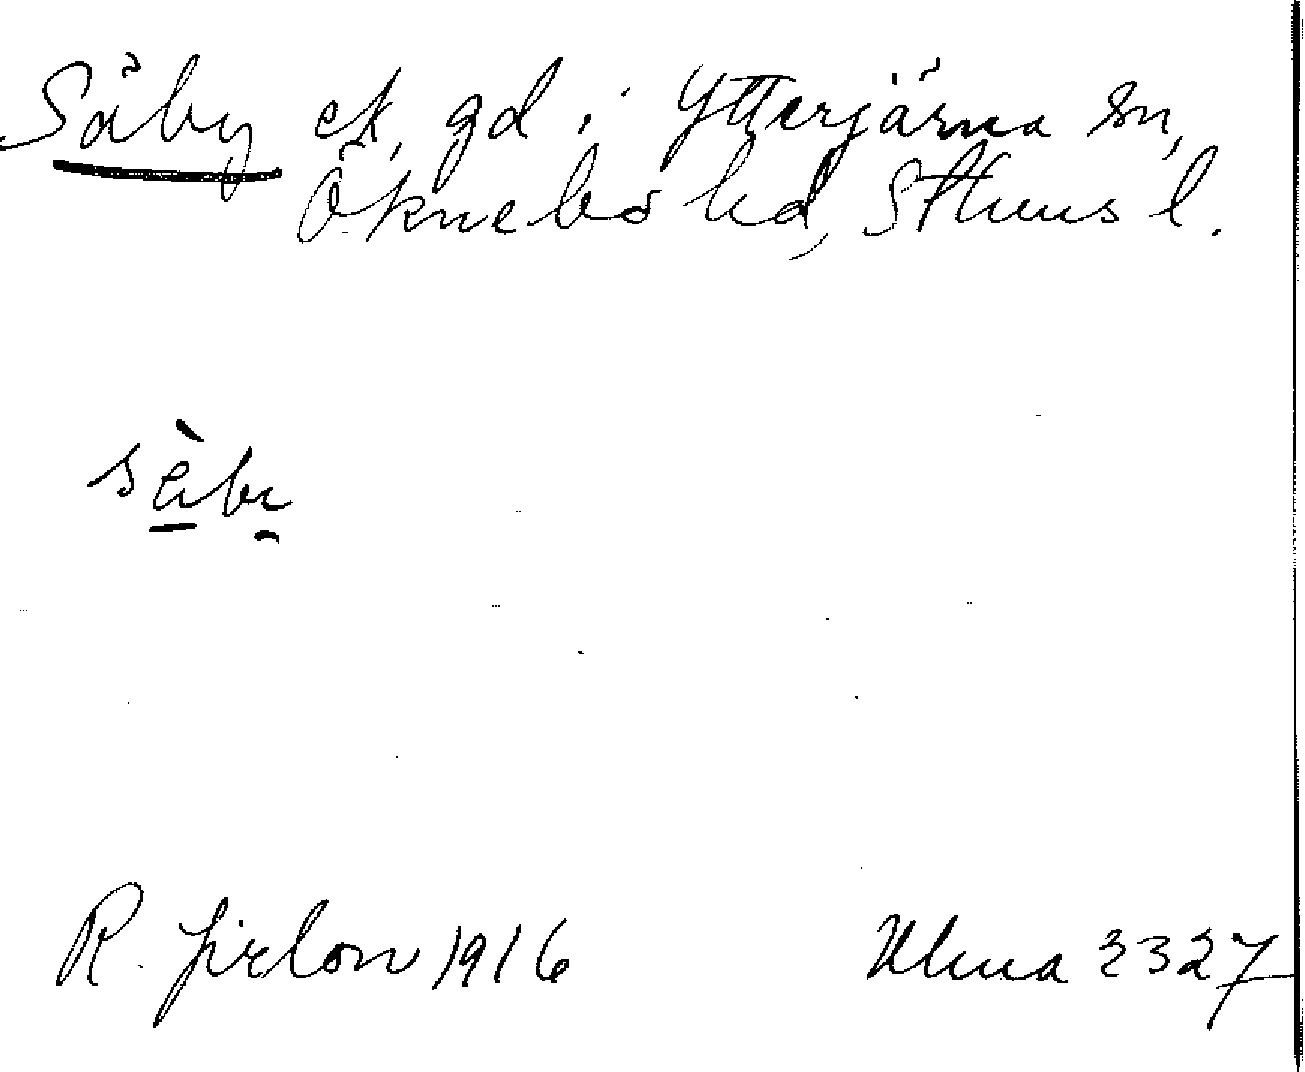 Säby ek, gd i Ytterjärna sn,
Öknebo hd, Sthms l.
sä̀bi
R. Jirlow 1916
Ulma 2327